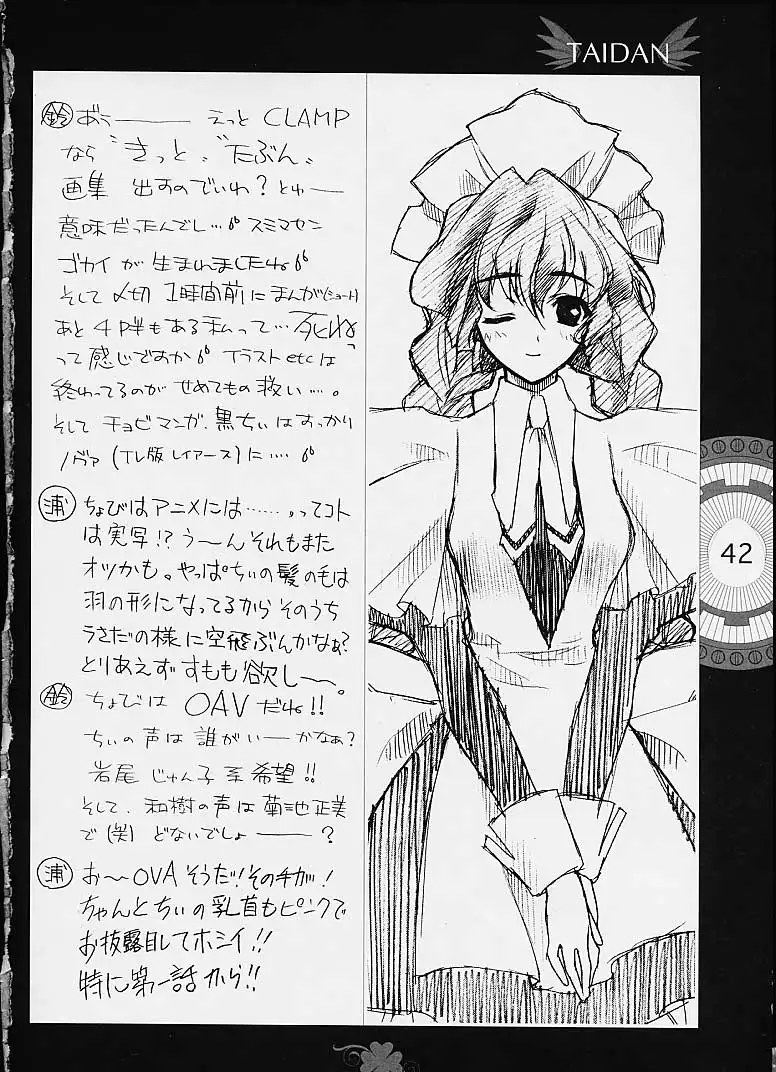 TAIDAN
鈴 あぅ―― えっと CLAMP
なら "きっと、"たぶん、
画集 出すのでいわ？とゅー
意味だったんでし…。スミマセン
ゴカイが生まれましたね
そして〆切 1時間前にまんが(ショート)
あと4P半もある私って…死ね
って感じですか イラストetcは
終わってるのが せめてもの救い…。
そして チョビマンガ、黒ちぃはすっかり
ノヴァ(TV版レイアース)に…
浦 ちょびはアニメには……。ってコト
は実写!? う～んそれもまた
オツかも。やっぱちぃの髪の毛は
羽の形になってるから そのうち
うさだの様に空飛ぶんかなぁ?
とりあえず すもも欲し～。
鈴 ちょびは OAVだね!!
ちぃの声は 誰がいーかなぁ?
岩尾 じゅん子 系希望!!
そして、和樹の声は菊池正美
で(笑) どないでしょ――?
浦 お～OVAそうだ!その手が!
ちゃんとちぃの乳首もピンクで
お披露目してホシイ!!
特に第一話から!!
42